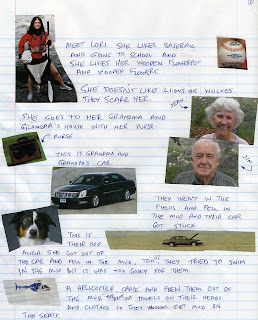 MEET LORI. SHE LIKES BASEBALL
AND GOING TO SCHOOL AND
SHE LIKES HER WOODEN FLOWERPOT
AND WOODEN FLOWERS
SHE DOESN'T LIKE LIONS OR WOLVES.
THEY SCARE HER.
JEAN
SHE GOES TO HER GRANDMA AND
GRANDPA'S HOUSE WITH HER PURSE.
PURSE
JIM
THIS IS GRANDMA AND
GRANDPA'S CAR.
THEY WENT IN THE
FIELDS AND FELL IN
THE MUD AND THEIR CAR
GOT STUCK.
THIS IS
THEIR DOG
SHE GOT OUT OF
THE CAR AND FELL IN THE MUD, TOO!! THEY TRIED TO SWIM
IN THE MUD BUT IT WAS TOO GOOEY FOR THEM.
A HELICOPTER CAME AND FLEW THEM OUT OF
THE MUD. TOWELS ON THEIR HEADS
AND CLOTHES SO THEY WOULDN'T GET MUD ON
THE SEATS.